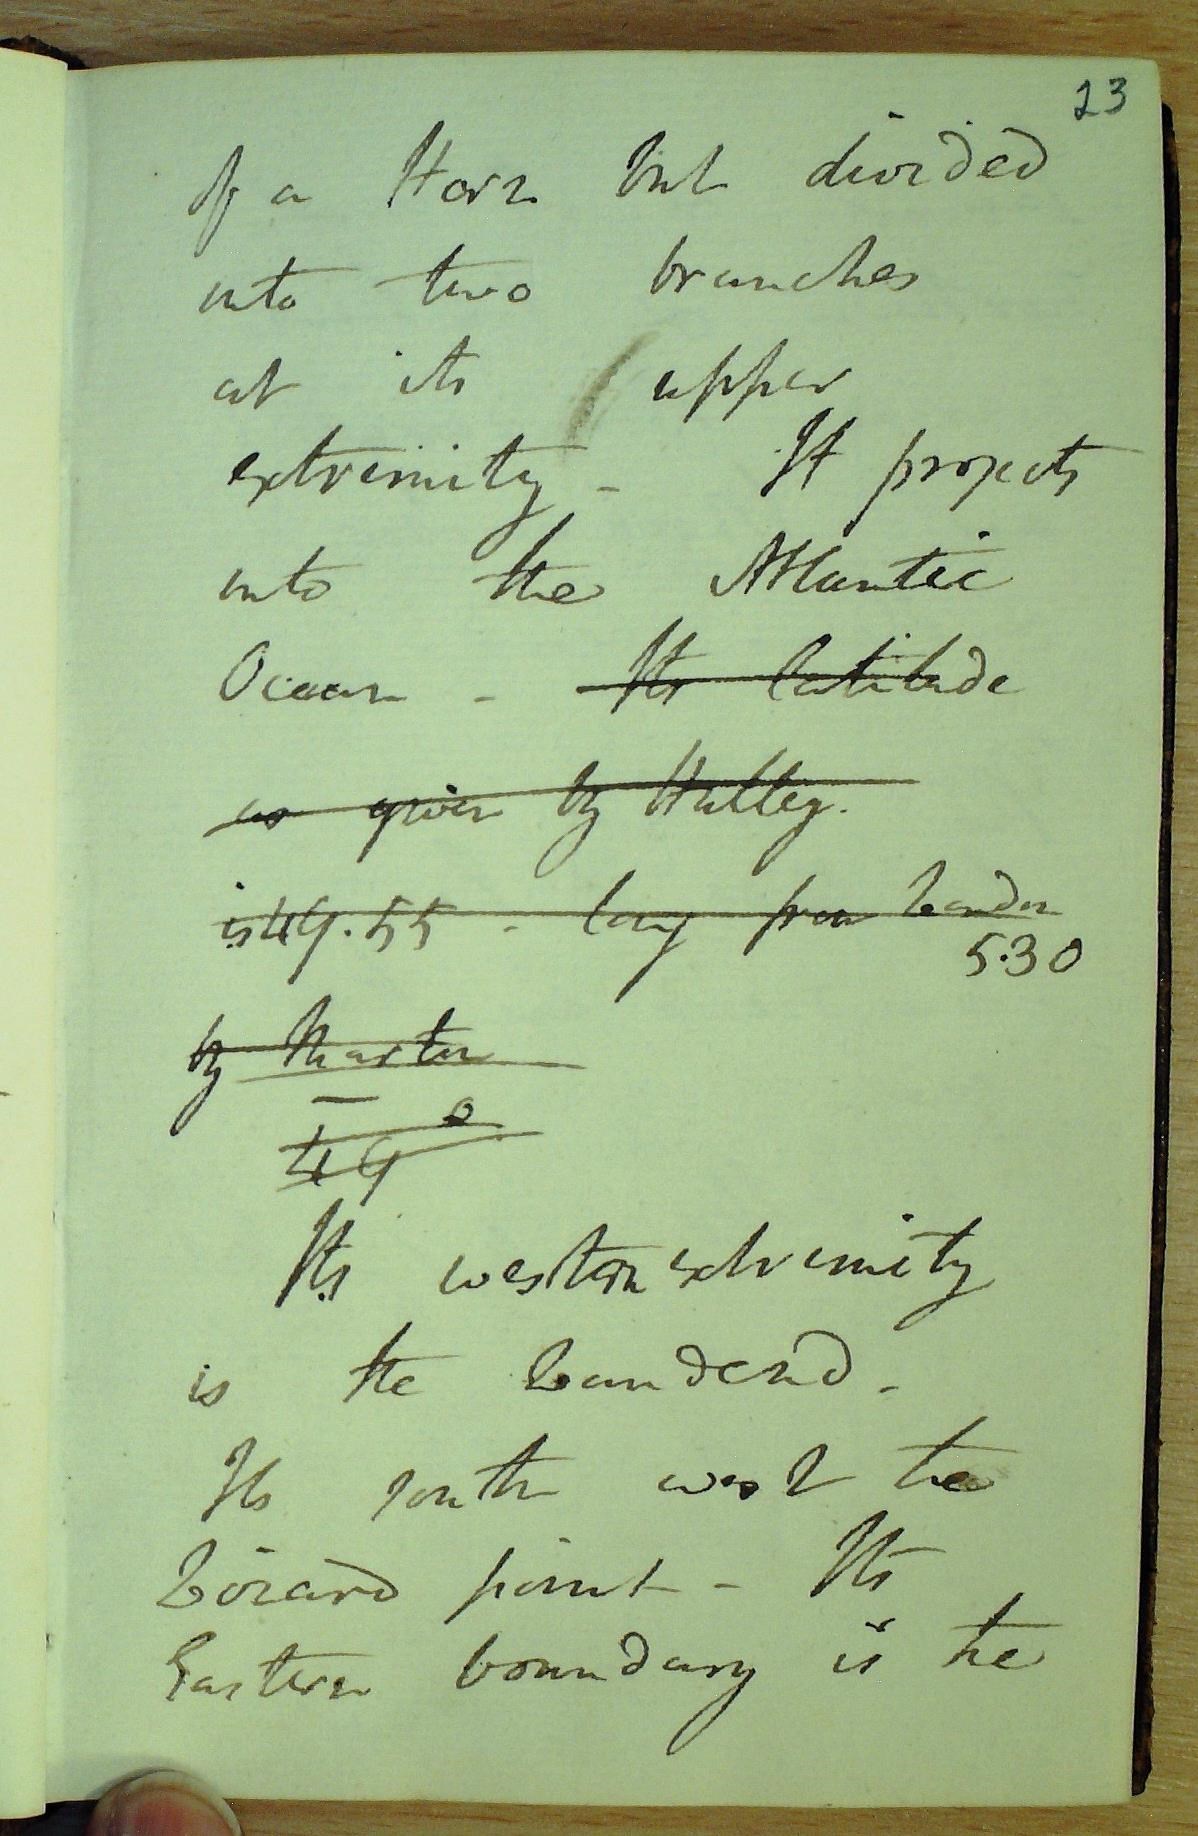 23
of a Horn but divided
into two branches
at its upper
extremity - It projects
into the Atlantic
Ocean - Its latitude
as given by Halley.
is 49.55 - long from London
5.30
by Martin
49°
Its western extremity
is the Landsend.
Its south west the
Lizard point - Its
Eastern boundary is the